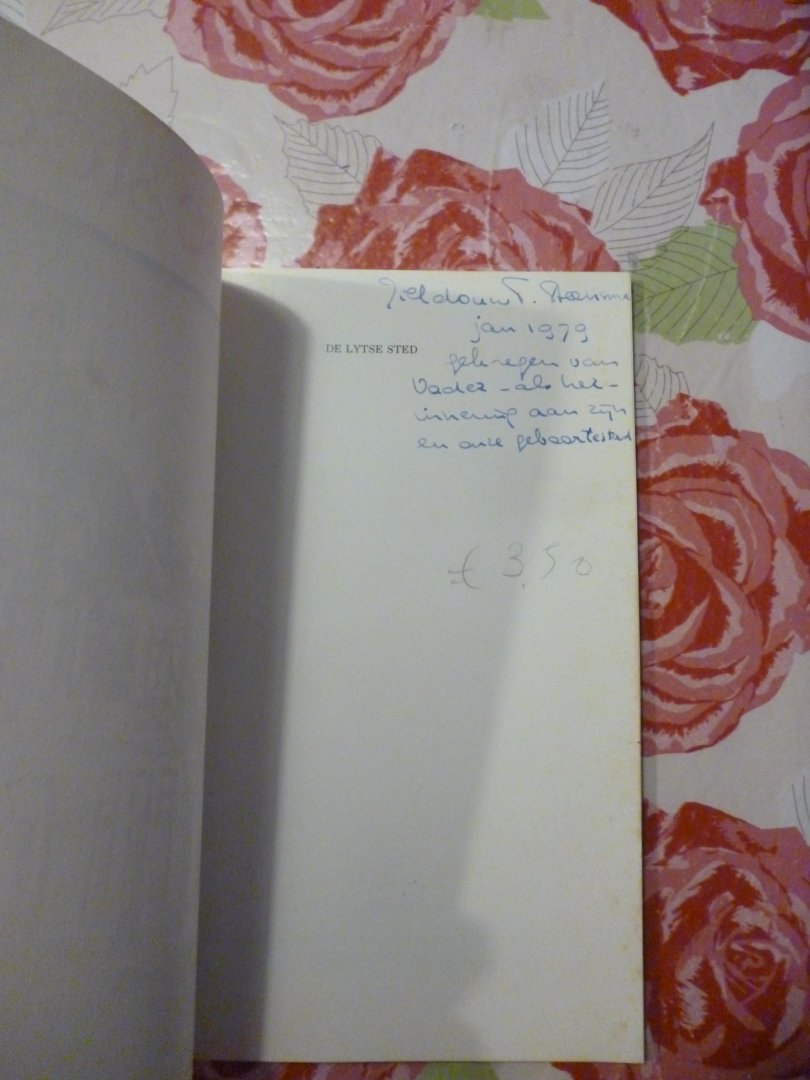 DE LYTSE STED
jan 1979
gekregen van
Vader - als her-
innering aan zijn
en onze geboortestad
£ 3.50